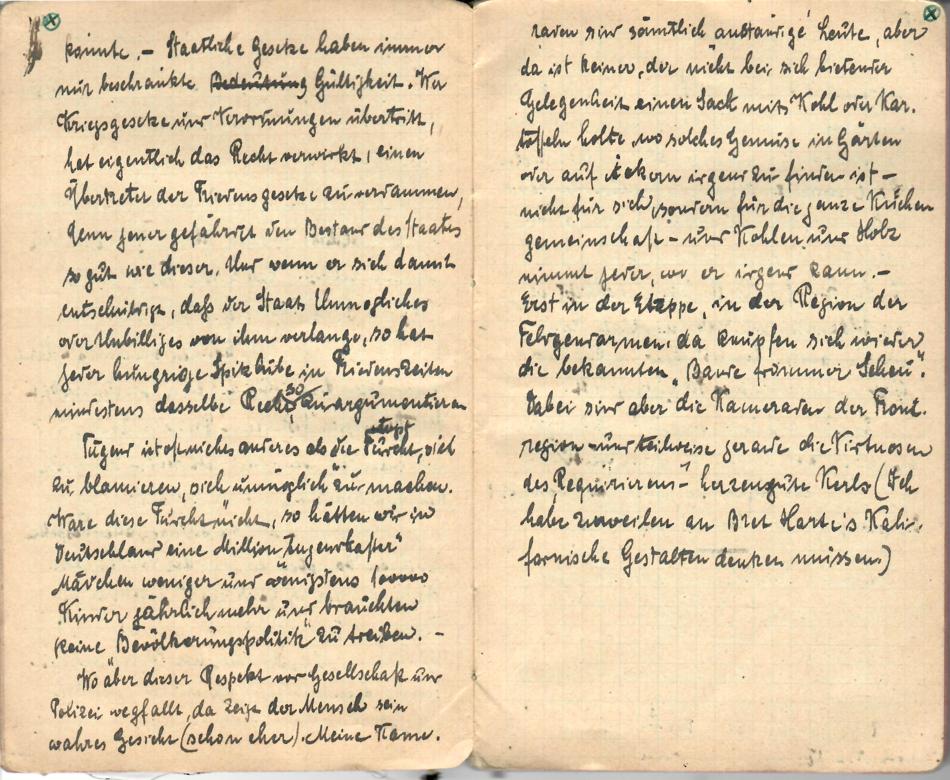 könnte. – Staatliche Gesetze haben immer
nur beschränkte Bedeutung Gültigkeit. Wer
Kriegsgesetze und Verordnungen übertritt,
hat eigentlich das Recht verwirkt, einen
Übertreter der Friedensgesetze zu verdammen,
denn jener gefährdet den Bestand des Staates
so gut wie dieser. Und wenn er sich damit
entschuldigt, daß der Staat Unmögliches
oder Unbilliges von ihm verlange, so hat
jeder hungrige Spitzbube in Friedenszeiten
mindestens dasselbe Recht, so zu argumentieren
Tugend ist oft nichts anderes als die Furcht, sich
zu blamieren, sich "unmöglich" zu machen.
Wäre diese Furcht nicht, so hätten wir in
Deutschland eine Million "tugendhafter"
Mädchen weniger und wenigstens 100000
Kinder jährlich mehr und brauchten
keine "Bevölkerungspolitik" zu treiben. –
Wo aber dieser Respekt vor Gesellschaft und
Polizei wegfällt, da zeigt der Mensch sein
wahres Gesicht (schon eher). Meine Kame-
raden sind sämtlich anständige Leute, aber
da ist keiner, der nicht bei sich bietender
Gelegenheit einen Sack mit Kohl oder Kar-
toffeln holte, wo solches Gemüse in Gärten
oder auf Äckern irgend zu finden ist –
nicht für sich, sondern für die ganze Küchen
gemeinschaft – und Kohlen und Holz
nimmt jeder, wo er irgend kann. –
Erst in der Etappe, in der Region der
Feldgendarmen, da knüpfen sich wieder
die bekannten "Bande frommer Scheu".
Dabei sind aber die Kameraden der Front-
region – und teilweise gerade die Virtuosen
des "Requirierens" – herzensgute Kerls (Ich
habe zuweilen an Bret Harte's Kali-
fornische Gestalten denken müssen.)